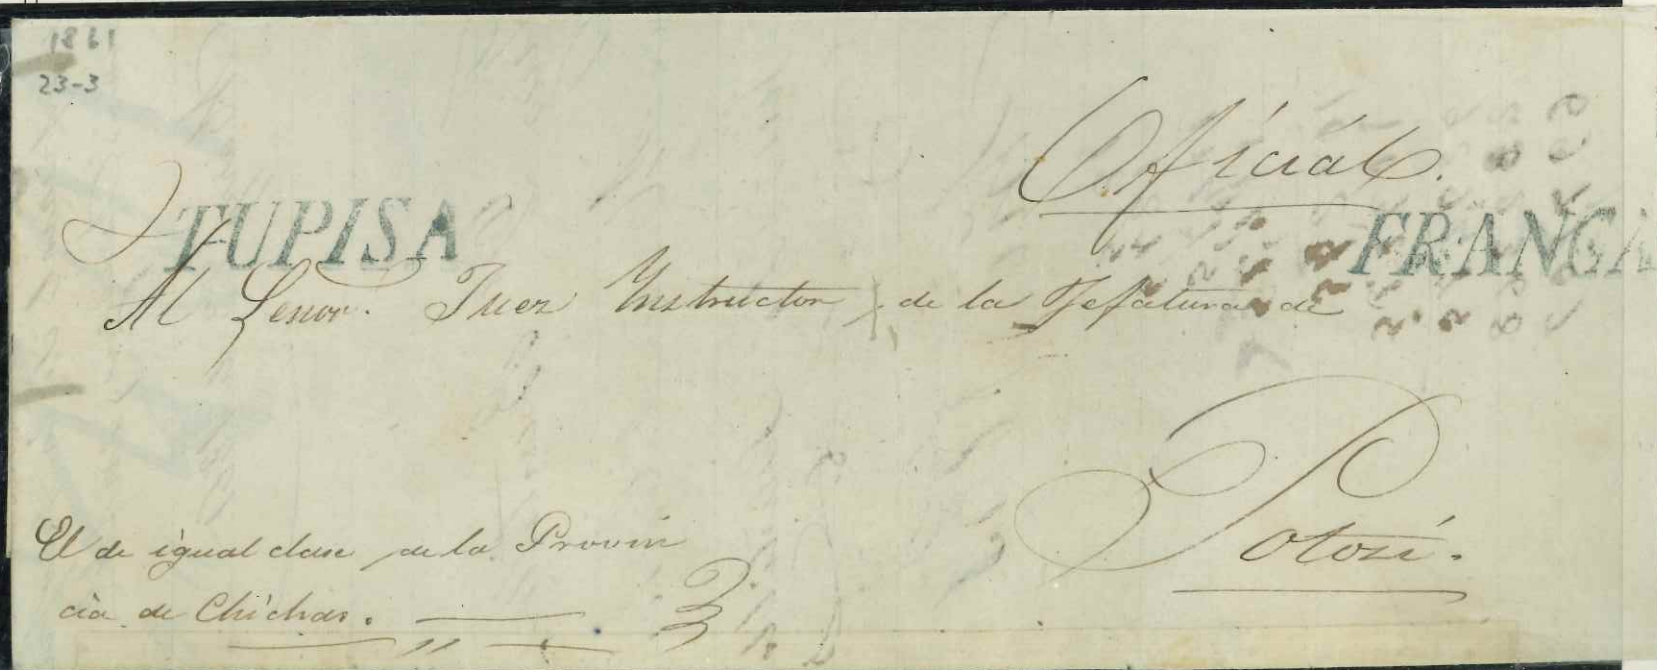 1861
23-3
Oficiál.
TUPISA
FRANCA
Al Señor. Juez Instructor de la Jefatura de
Potosí.
El de igual clase de la Provin
cia de Chichas.